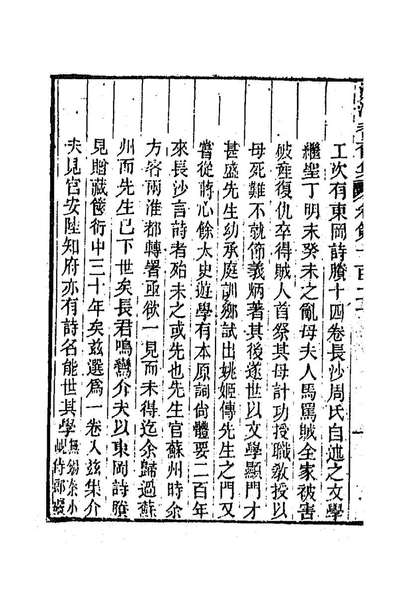 工次有東岡詩賸十四卷長沙周氏自述之文學
繼聖丁明末癸未之亂母夫人馬罵賊全家被害
破產復仇卒得賊人首祭其母計功授職敎授以
母死難不就節義炳著其後遂世以文學顯門才
甚盛先生幼承庭訓鄉試出姚姬傳先生之門又
嘗從蔣心餘太史遊學有本原詞尙體要二百年
來長沙言詩者殆未之或先也先生官蘇州時余
方客兩淮都轉署亟欲一見而未得迄余歸過蘇
州而先生已下世矣長君鳴鸞介夫以東岡詩賸
見贈藏篋衍中三十年矣茲選爲一卷入茲集介
夫見官安陸知府亦有詩名能世其學
無錫余小